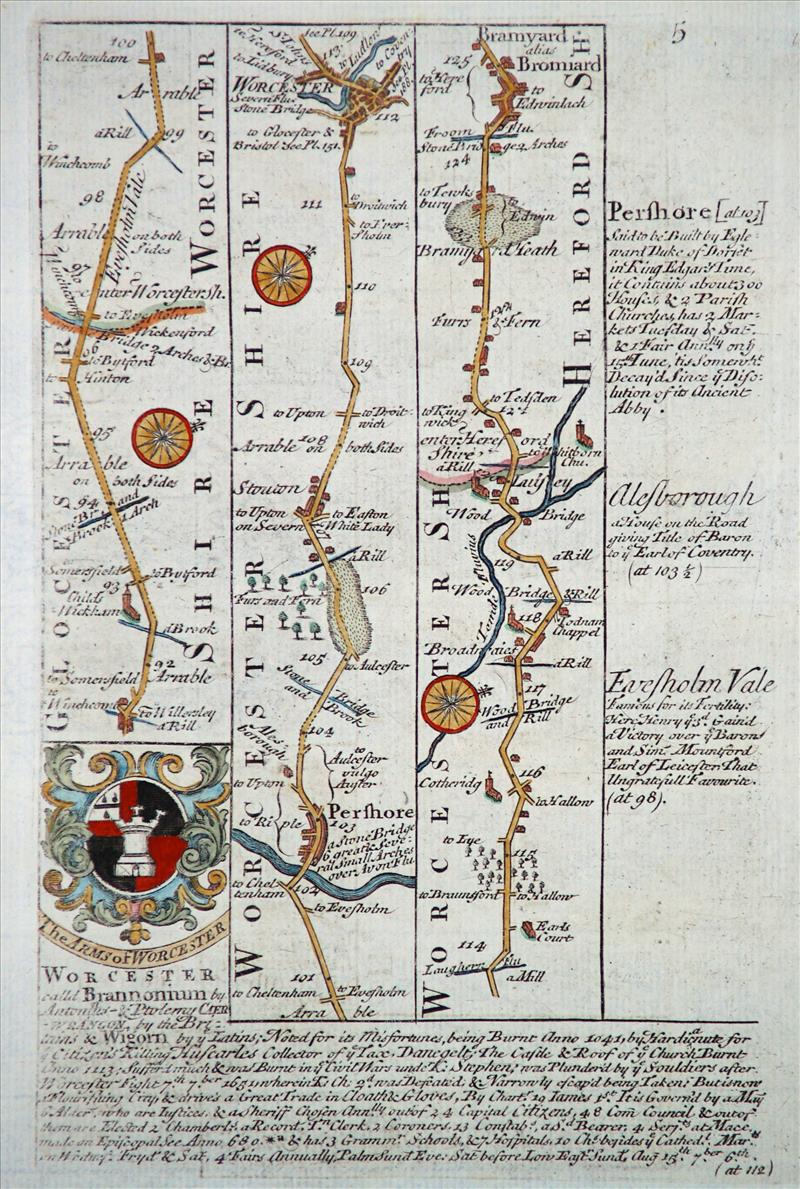 5
100
to Cheltenham
Arrable
a Rill
99
to
Winchcomb
98
Evesholm Vale
Arrable on both
Sides
97
to
Winchcomb
enter Worcestersh.
to Evesholm
Wickenford
Bridge 2 Arches & Br.
96
to Byford
to
Hinton
95
Arrable
on both Sides
94
Stone Br. and
Brook 1 Arch
to Somersfield
to Byford
93
Childs
Wickham
a Brook
92
to Somersfield
Arrable
to
Winchcomb
to Willersley
a Rill
GLOCESTER
SHIRE
WORCESTER
The ARMS of WORCESTER
See Pl. 109
to Hereford
St Johns
to Ludlow
to Coventry
See Pl.
to Lidbury
113
WORCESTER
Severn Flu.
Stone Bridge
112
to Glocester &
Bristol See Pl. 151.
111
to Droitwich
to Evesholm
110
109
to Upton
to Droitwich
Arrable 108 on both Sides
Stouton
to Upton
on Severn
to Easton
White Lady
a Rill
Furs and Fern
106
105
to Aulcester
Stone Bridge
and Brook
104
Alesborough
Aulcester
vulgo
Auster
to Upton
to Riple
Pershore
103
a Stone Bridge
6 great & Several
small Arches
over Avon Flu.
to Cheltenham
102
to Evesholm
101
to Cheltenham
to Evesholm
Arrable
WORCESTER SHIRE
Bramyard
alias
Bromiard
125
to Hereford
to
Edwinlach
Froom Flu.
Stone Bridge 2 Arches
124
to Tewksbury
to
Edwin
Bramyard Heath
Furrs & Fern
to Tedsden
to Kingwick
121
enter Hereford
Shire
to Whitborn
Chu.
a Rill
Laysey
Wood Bridge
119
a Rill
Temde Fluvius
Wood Bridge & Rill
118
Todnam
Chappel
Broadwaies
a Rill
117
Wood Bridge
and Rill
116
Cotheridg
to Hallow
to Lye
115
to Braunsford
to Hallow
Earls
Court
114
Laughern flu.
a Mill
WORCESTER SH
HEREFORD SH
Pershore [at 103]
Said to be Built by Egleward
Duke of Dorset
in King Edgar's Time,
it Contains about 300
Houses, & 2 Parish
Churches, has 2 Markets
Tuesday & Sat.
& 1 Fair Annlly on ye
15th Iune, tis Somewht.
Decay'd Since ye Disolution
of its Ancient
Abby.
Alesborough
a House on the Road
giving Title of Baron
to ye Earl of Coventry.
(at 103 ½)
Evesholm Vale
Famous for its Fertility:
Here Henry ye 3d. Gain'd
a Victory over ye Barons
and Sim. Mountford
Earl of Leicester That
Ungratefull Favourite.
(at 98).
WORCESTER
call'd Brannonium by
Antonius & Ptolemy CAER
WRANGON, by the Britans
& Wigorn by ye Latins; Noted for its Misfortunes, being Burnt Anno 1041, by Hardicnute for
ye Citizens Killing Huscarles Collector of ye Tax, Danegelt. The Castle & Roof of ye Church Burnt
Anno 1113; Suffer'd much & was Burnt in ye Civil Wars under K. Stephen; was Plunder'd by ye Souldiers after
Worcester Fight 7th 7ber 1651 wherein K. Ch. 2d was Defeated, & Narrowly escap'd being Taken; But is now
a Flourishing City & drives a Great Trade in Cloath & Gloves, By Chart. 19 Iames 1st It is Govern'd by a May.
6 Alder. who are Iustices, & a Sheriff Chosen Annlly out of 24 Capital Citizens, 48 Com. Council & out of
them are Elected 2 Chamberl. a Record. Tn Clerk, 2 Coroners, 13 Constab. a Sd. Bearer, 4 Serjts at Mace,
made an Episcopal See Anno 680. & has 3 Gramm. Schools, & 7 Hospitals, 10 Chs. besides ye Cathed. Mar.
on Wednes. Fryd. & Sat. 4 Fairs Annually, Palm Sund Eve: Sat. before Low East. Sund. Aug 15th. 7ber 8th.
(at 112)